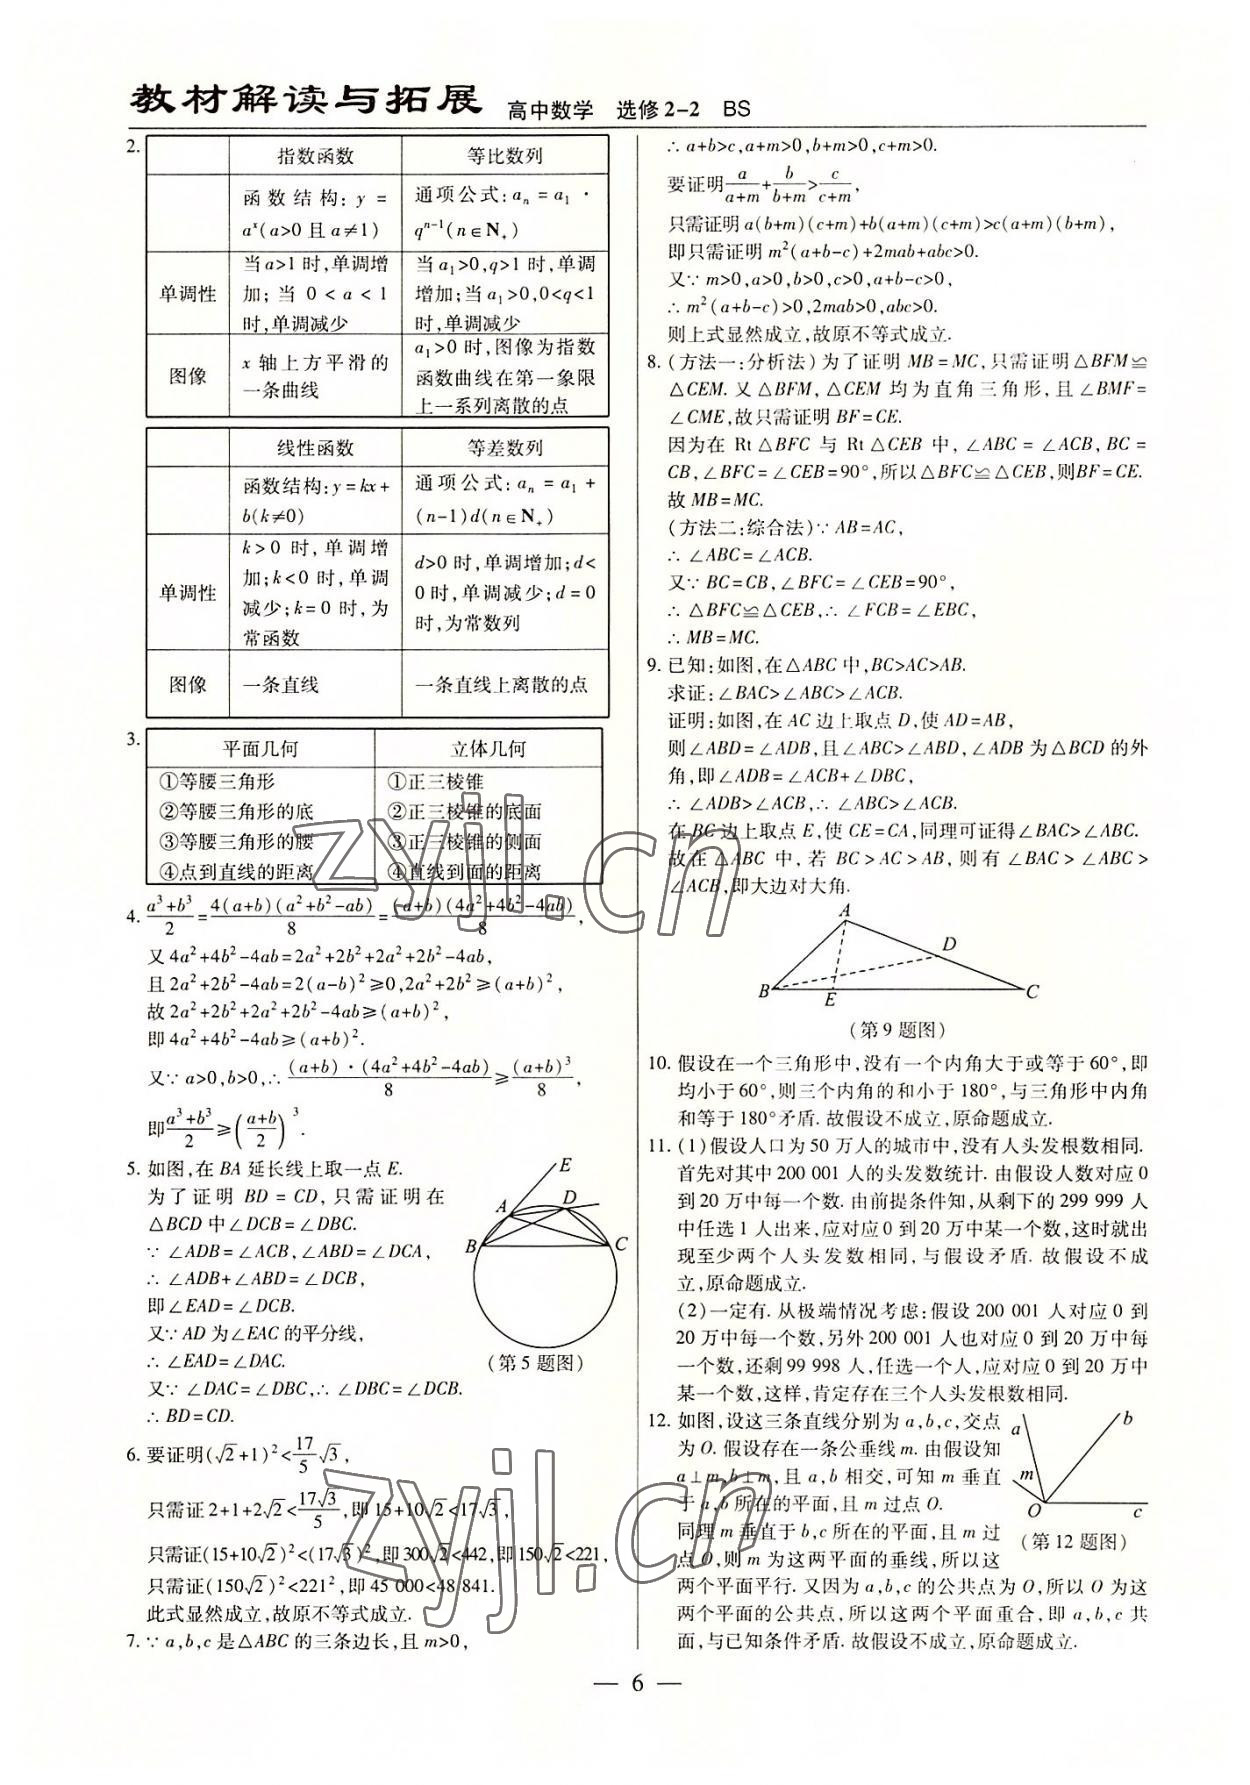 教材解读与拓展 高中数学 选修2-2 BS
2.
指数函数 等比数列
函数结构: y = 通项公式: aₙ = a₁ ·
aˣ(a>0 且 a≠1) qⁿ⁻¹(n∈N₊)
单调性
当 a>1 时,单调增
加; 当 0 < a < 1
时,单调减少
当 a₁>0,q>1 时,单调
增加;当 a₁>0,0<q<1
时,单调减少
图像
x 轴上方平滑的
一条曲线
a₁>0 时,图像为指数
函数曲线在第一象限
上一系列离散的点
线性函数 等差数列
函数结构:y=kx+
b(k≠0)
通项公式: aₙ = a₁ +
(n-1)d(n∈N₊)
单调性
k>0 时,单调增
加;k<0 时,单调
减少;k=0 时,为
常函数
d>0 时,单调增加;d<
0 时,单调减少;d=0
时,为常数列
图像
一条直线
一条直线上离散的点
3.
平面几何 立体几何
①等腰三角形 ①正三棱锥
②等腰三角形的底 ②正三棱锥的底面
③等腰三角形的腰 ③正三棱锥的侧面
④点到直线的距离 ④直线到面的距离
4. (a³+b³)/2 = 4(a+b)(a²+b²-ab)/8 = (a+b)(4a²+4b²-4ab)/8,
又 4a²+4b²-4ab=2a²+2b²+2a²+2b²-4ab,
且 2a²+2b²-4ab=2(a-b)²≥0,2a²+2b²≥(a+b)²,
故 2a²+2b²+2a²+2b²-4ab≥(a+b)²,
即 4a²+4b²-4ab≥(a+b)².
又∵ a>0,b>0,∴ (a+b)·(4a²+4b²-4ab)/8 ≥ (a+b)³/8,
即 (a³+b³)/2 ≥ ((a+b)/2)³.
5. 如图,在 BA 延长线上取一点 E.
为了证明 BD = CD, 只需证明在
△BCD 中∠DCB=∠DBC.
∵ ∠ADB=∠ACB,∠ABD=∠DCA,
∴ ∠ADB+∠ABD=∠DCB,
即∠EAD=∠DCB.
又∵ AD 为∠EAC 的平分线,
∴ ∠EAD=∠DAC.
又∵ ∠DAC=∠DBC,∴ ∠DBC=∠DCB.
∴ BD=CD.
E
A
D
B
C
(第 5 题图)
6. 要证明(√2+1)²<17/5 √3,
只需证 2+1+2√2<17√3/5,即 15+10√2<17√3,
只需证(15+10√2)²<(17√3)²,即 300√2<442,即 150√2<221,
只需证(150√2)²<221²,即 45 000<48 841.
此式显然成立,故原不等式成立.
7. ∵ a,b,c 是△ABC 的三条边长,且 m>0,
∴ a+b>c,a+m>0,b+m>0,c+m>0.
要证明 a/(a+m) + b/(b+m) > c/(c+m),
只需证明 a(b+m)(c+m)+b(a+m)(c+m)>c(a+m)(b+m),
即只需证明 m²(a+b-c)+2mab+abc>0.
又∵ m>0,a>0,b>0,c>0,a+b-c>0,
∴ m²(a+b-c)>0,2mab>0,abc>0.
则上式显然成立,故原不等式成立.
8. (方法一:分析法) 为了证明 MB=MC,只需证明△BFM≌
△CEM. 又△BFM, △CEM 均为直角三角形, 且∠BMF=
∠CME,故只需证明 BF=CE.
因为在 Rt△BFC 与 Rt△CEB 中, ∠ABC=∠ACB, BC=
CB,∠BFC=∠CEB=90°,所以△BFC≌△CEB,则BF=CE.
故 MB=MC.
(方法二:综合法)∵ AB=AC,
∴ ∠ABC=∠ACB.
又∵ BC=CB,∠BFC=∠CEB=90°,
∴ △BFC≌△CEB,∴ ∠FCB=∠EBC,
∴ MB=MC.
9. 已知:如图,在△ABC 中,BC>AC>AB.
求证:∠BAC>∠ABC>∠ACB.
证明:如图,在 AC 边上取点 D,使 AD=AB,
则∠ABD=∠ADB,且∠ABC>∠ABD,∠ADB 为△BCD 的外
角,即∠ADB=∠ACB+∠DBC,
∴ ∠ADB>∠ACB,∴ ∠ABC>∠ACB.
在 BC 边上取点 E,使 CE=CA,同理可证得∠BAC>∠ABC.
故在△ABC 中, 若 BC>AC>AB, 则有∠BAC>∠ABC>
∠ACB,即大边对大角.
A
D
B
E
C
(第 9 题图)
10. 假设在一个三角形中,没有一个内角大于或等于 60°,即
均小于 60°,则三个内角的和小于 180°,与三角形中内角
和等于 180°矛盾. 故假设不成立,原命题成立.
11. (1)假设人口为 50 万人的城市中,没有人头发根数相同.
首先对其中 200 001 人的头发数统计. 由假设人数对应 0
到 20 万中每一个数. 由前提条件知,从剩下的 299 999 人
中任选 1 人出来,应对应 0 到 20 万中某一个数,这时就出
现至少两个人头发数相同,与假设矛盾. 故假设不成
立,原命题成立.
(2)一定有. 从极端情况考虑:假设 200 001 人对应 0 到
20 万中每一个数,另外 200 001 人也对应 0 到 20 万中每
一个数,还剩 99 998 人,任选一个人,应对应 0 到 20 万中
某一个数,这样,肯定存在三个人头发根数相同.
12. 如图,设这三条直线分别为 a,b,c,交点
为 O. 假设存在一条公垂线 m. 由假设知
a⊥m,b⊥m,且 a,b 相交,可知 m 垂直
于 a,b 所在的平面,且 m 过点 O.
同理 m 垂直于 b,c 所在的平面,且 m 过
点 O,则 m 为这两平面的垂线,所以这
两个平面平行. 又因为 a,b,c 的公共点为 O,所以 O 为这
两个平面的公共点,所以这两个平面重合,即 a,b,c 共
面,与已知条件矛盾. 故假设不成立,原命题成立.
a
b
m
O
c
(第 12 题图)
zyjl.cn
zyjl.cn
— 6 —